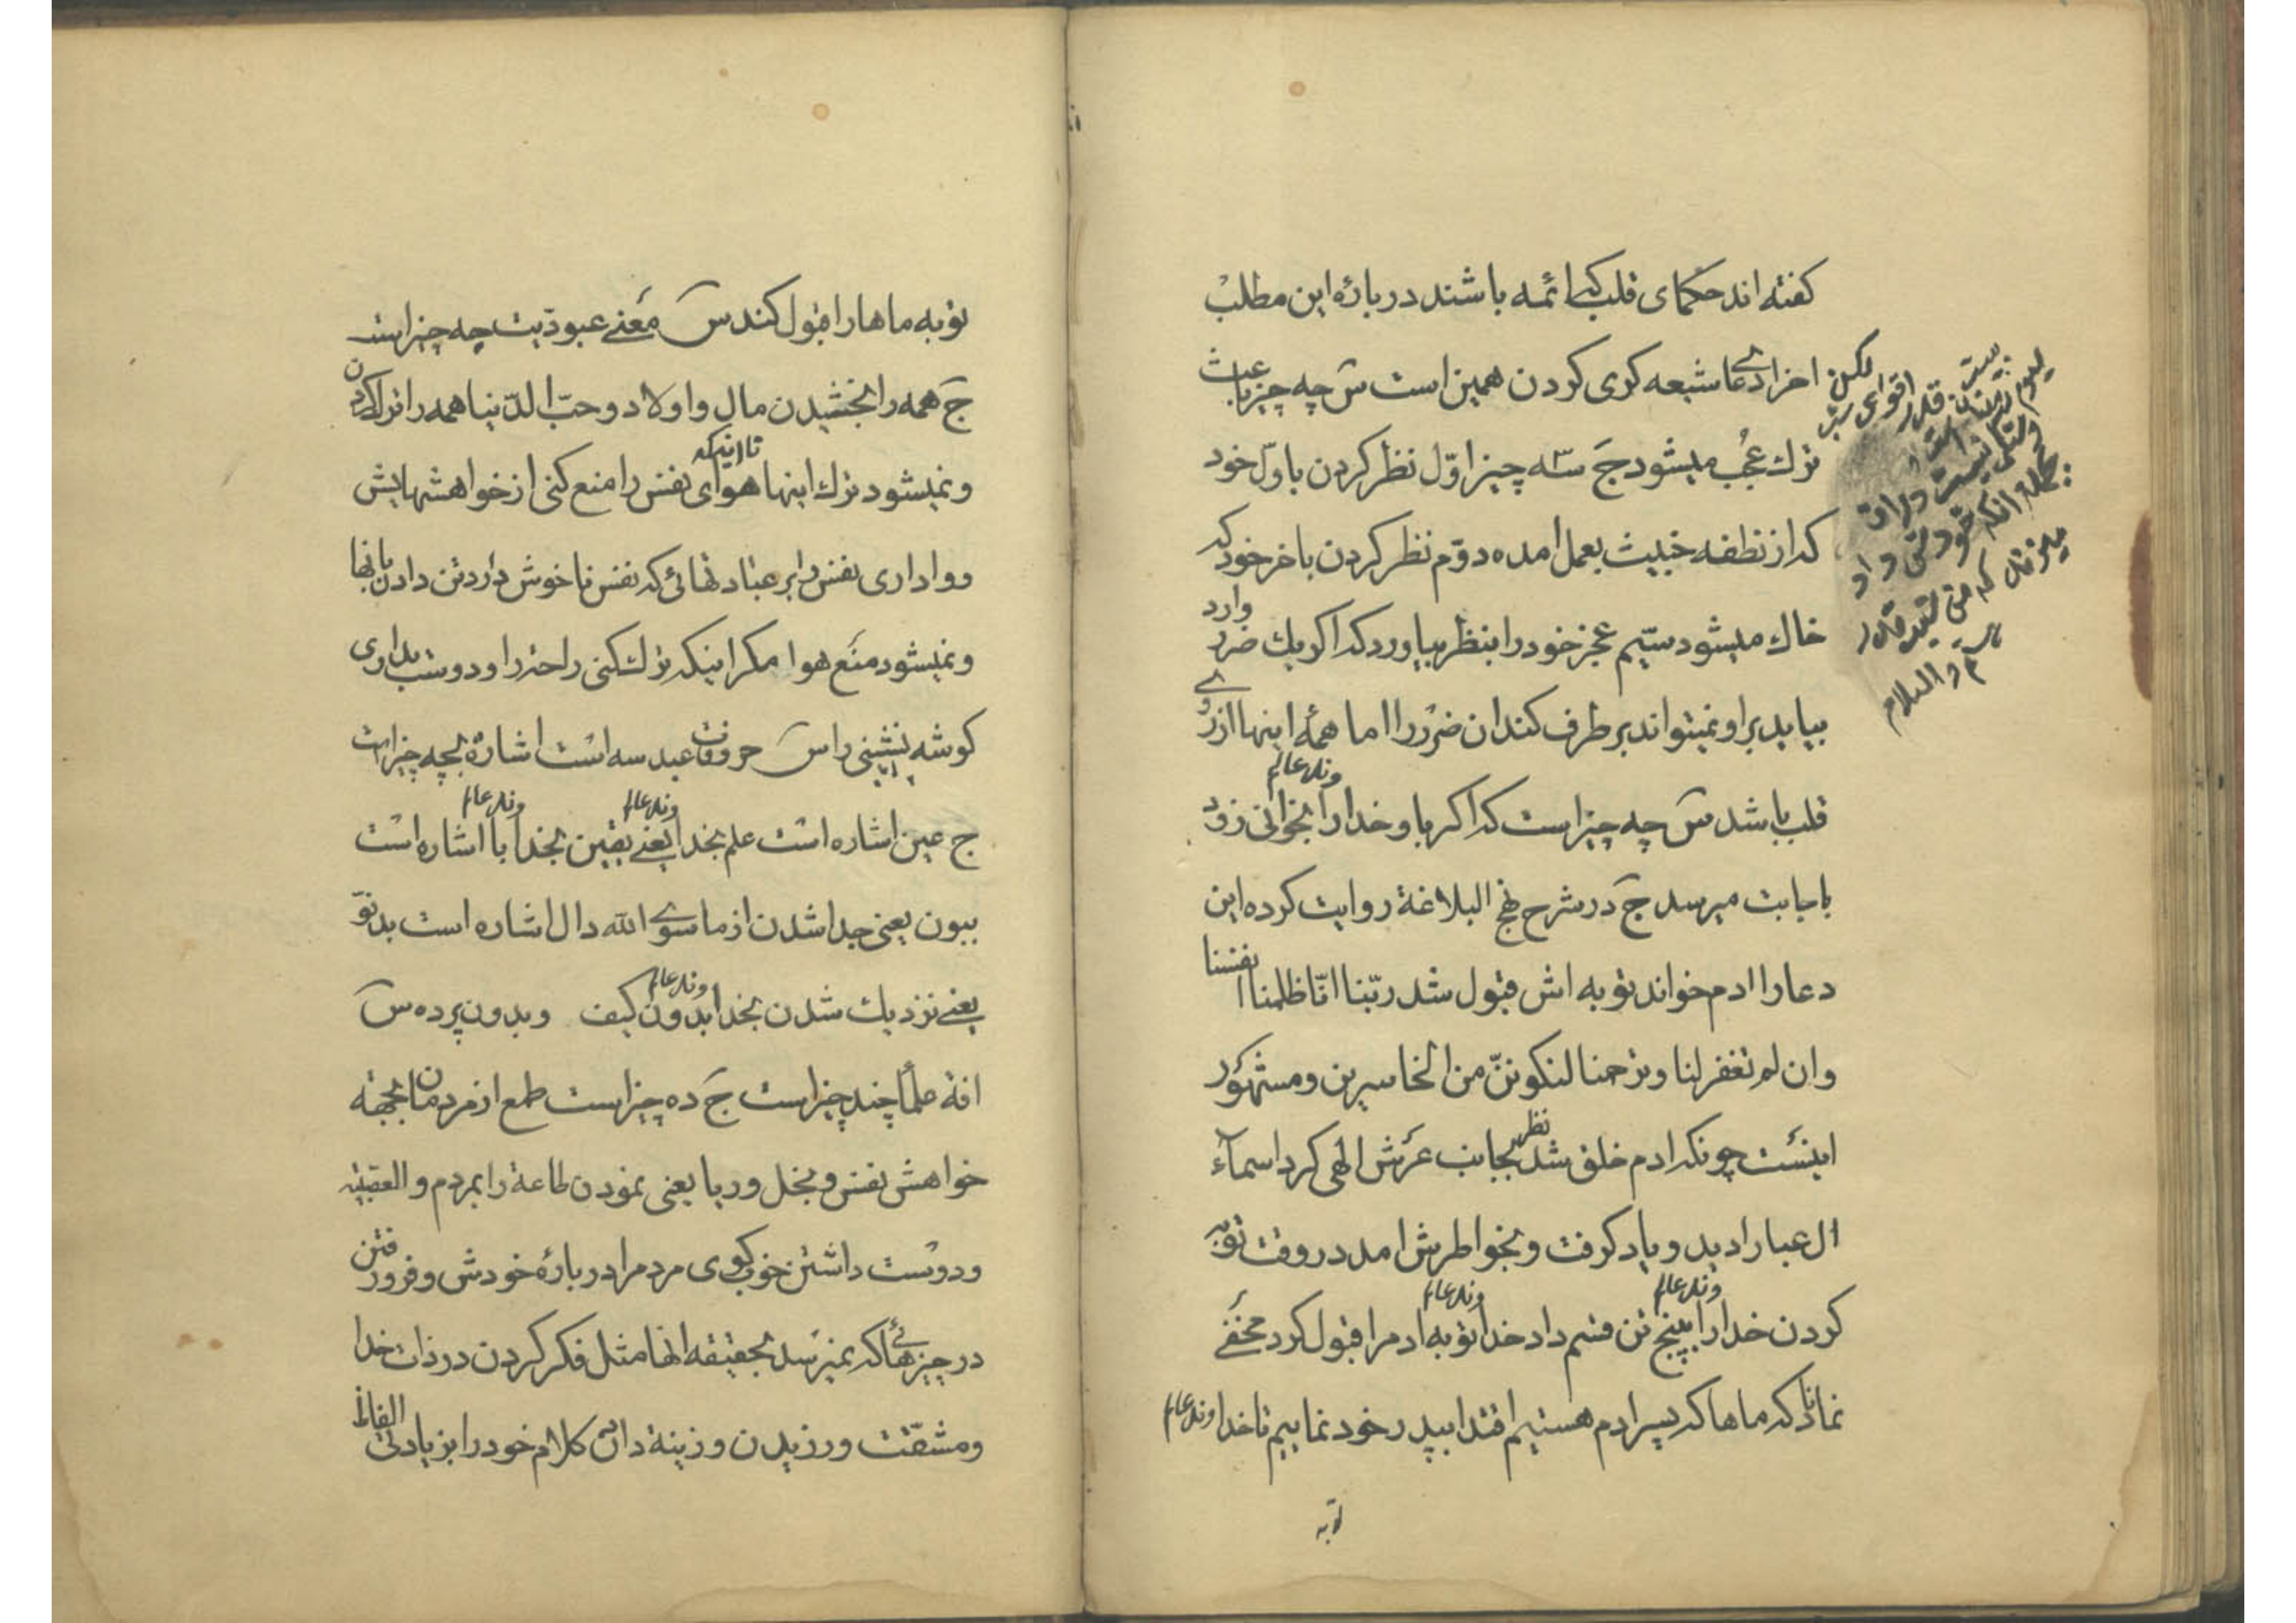 كفته اند حكماى قلب كه ائمه باشند در باره اين مطلب
اخر ادعا شيعه كرى كردن همين است س چه چيز باعث
ترك عُجب ميشود ج سه چيز اوّل نظر كردن باوّل خود
كه از نطفه خبيث بعمل امده دوّم نظر كردن باخر خود كه
خاك ميشود سيّم عجز خود را بنظر بياورد كه اكر يك ضرر وارد
بيايد براو نميتواند برطرف كند ان ضرر را اما همه اينها از روے
قلب باشد س چه چيز است كه اكر باو خدا وند عالم را بخوانى زود
باجابت ميرسد ج در شرح نهج البلاغة روايت كرده اين
دعا را ادم خواند توبه اش قبول شد ربّنا انّا ظلمنا انفسنا
وان لم تغفر لنا وترحمنا لنكوننّ من الخاسرين ومشهور
اينست چونكه ادم خلق شد نظر بجانب عرش الهى كرد اسماء
ال عبا را ديد و ياد كرفت و بخواطرش امد در وقت توبه
كردن خدا وند عالم را به پنج تن قسم داد خدا وند عالم توبه ادم را قبول كرد مخفے
نماند كه ماها كه پسر ادم هستيم اقتدا بپدر خود نماييم تا خدا وند عالم
توبه
توبه ماها را قبول كند س معنے عبوديت چه چيز است
ج همه را بخشيدن مال و اولاد و حبّ الدّنيا همه را ترك كردن
و نميشود ترك اينها تا اينكه هواى نفس را منع كنى از خواهشهايش
و وادارى نفس را بر عبادتهائى كه نفس ناخوش دارد تن دادن بانها
و نميشود منع هوا مكر اينكه ترك كنى راحت را و دوست بدارى
كوشه نشينى را س حروفات عبد سه است اشاره بچه چيز است
ج عين اشاره است علم بخدا وند عالم يعنے يقين بخدا وند عالم با اشاره است
ببون يعنى جدا شدن از ما سوے الله دال اشاره است بدنوّ
يعنے نزديك شدن بخدا وند عالم بدون كيف و بدون پرده س
افة علما چند چيز است ج ده چيز است طمع از مردمان بجهة
خواهش نفس و بخل و ريا يعنى نمودن طاعة را بمردم و العصبية
و دوست داشتن خوب كوى مردم را در باره خودش و فرو رفتن
در چيزهائے كه نميرسد بحقيقة انها مثل فكر كردن در ذات خدا
و مشقّت ورزيدن و زينة دادن كلام خود را بزيادتى الفاظ